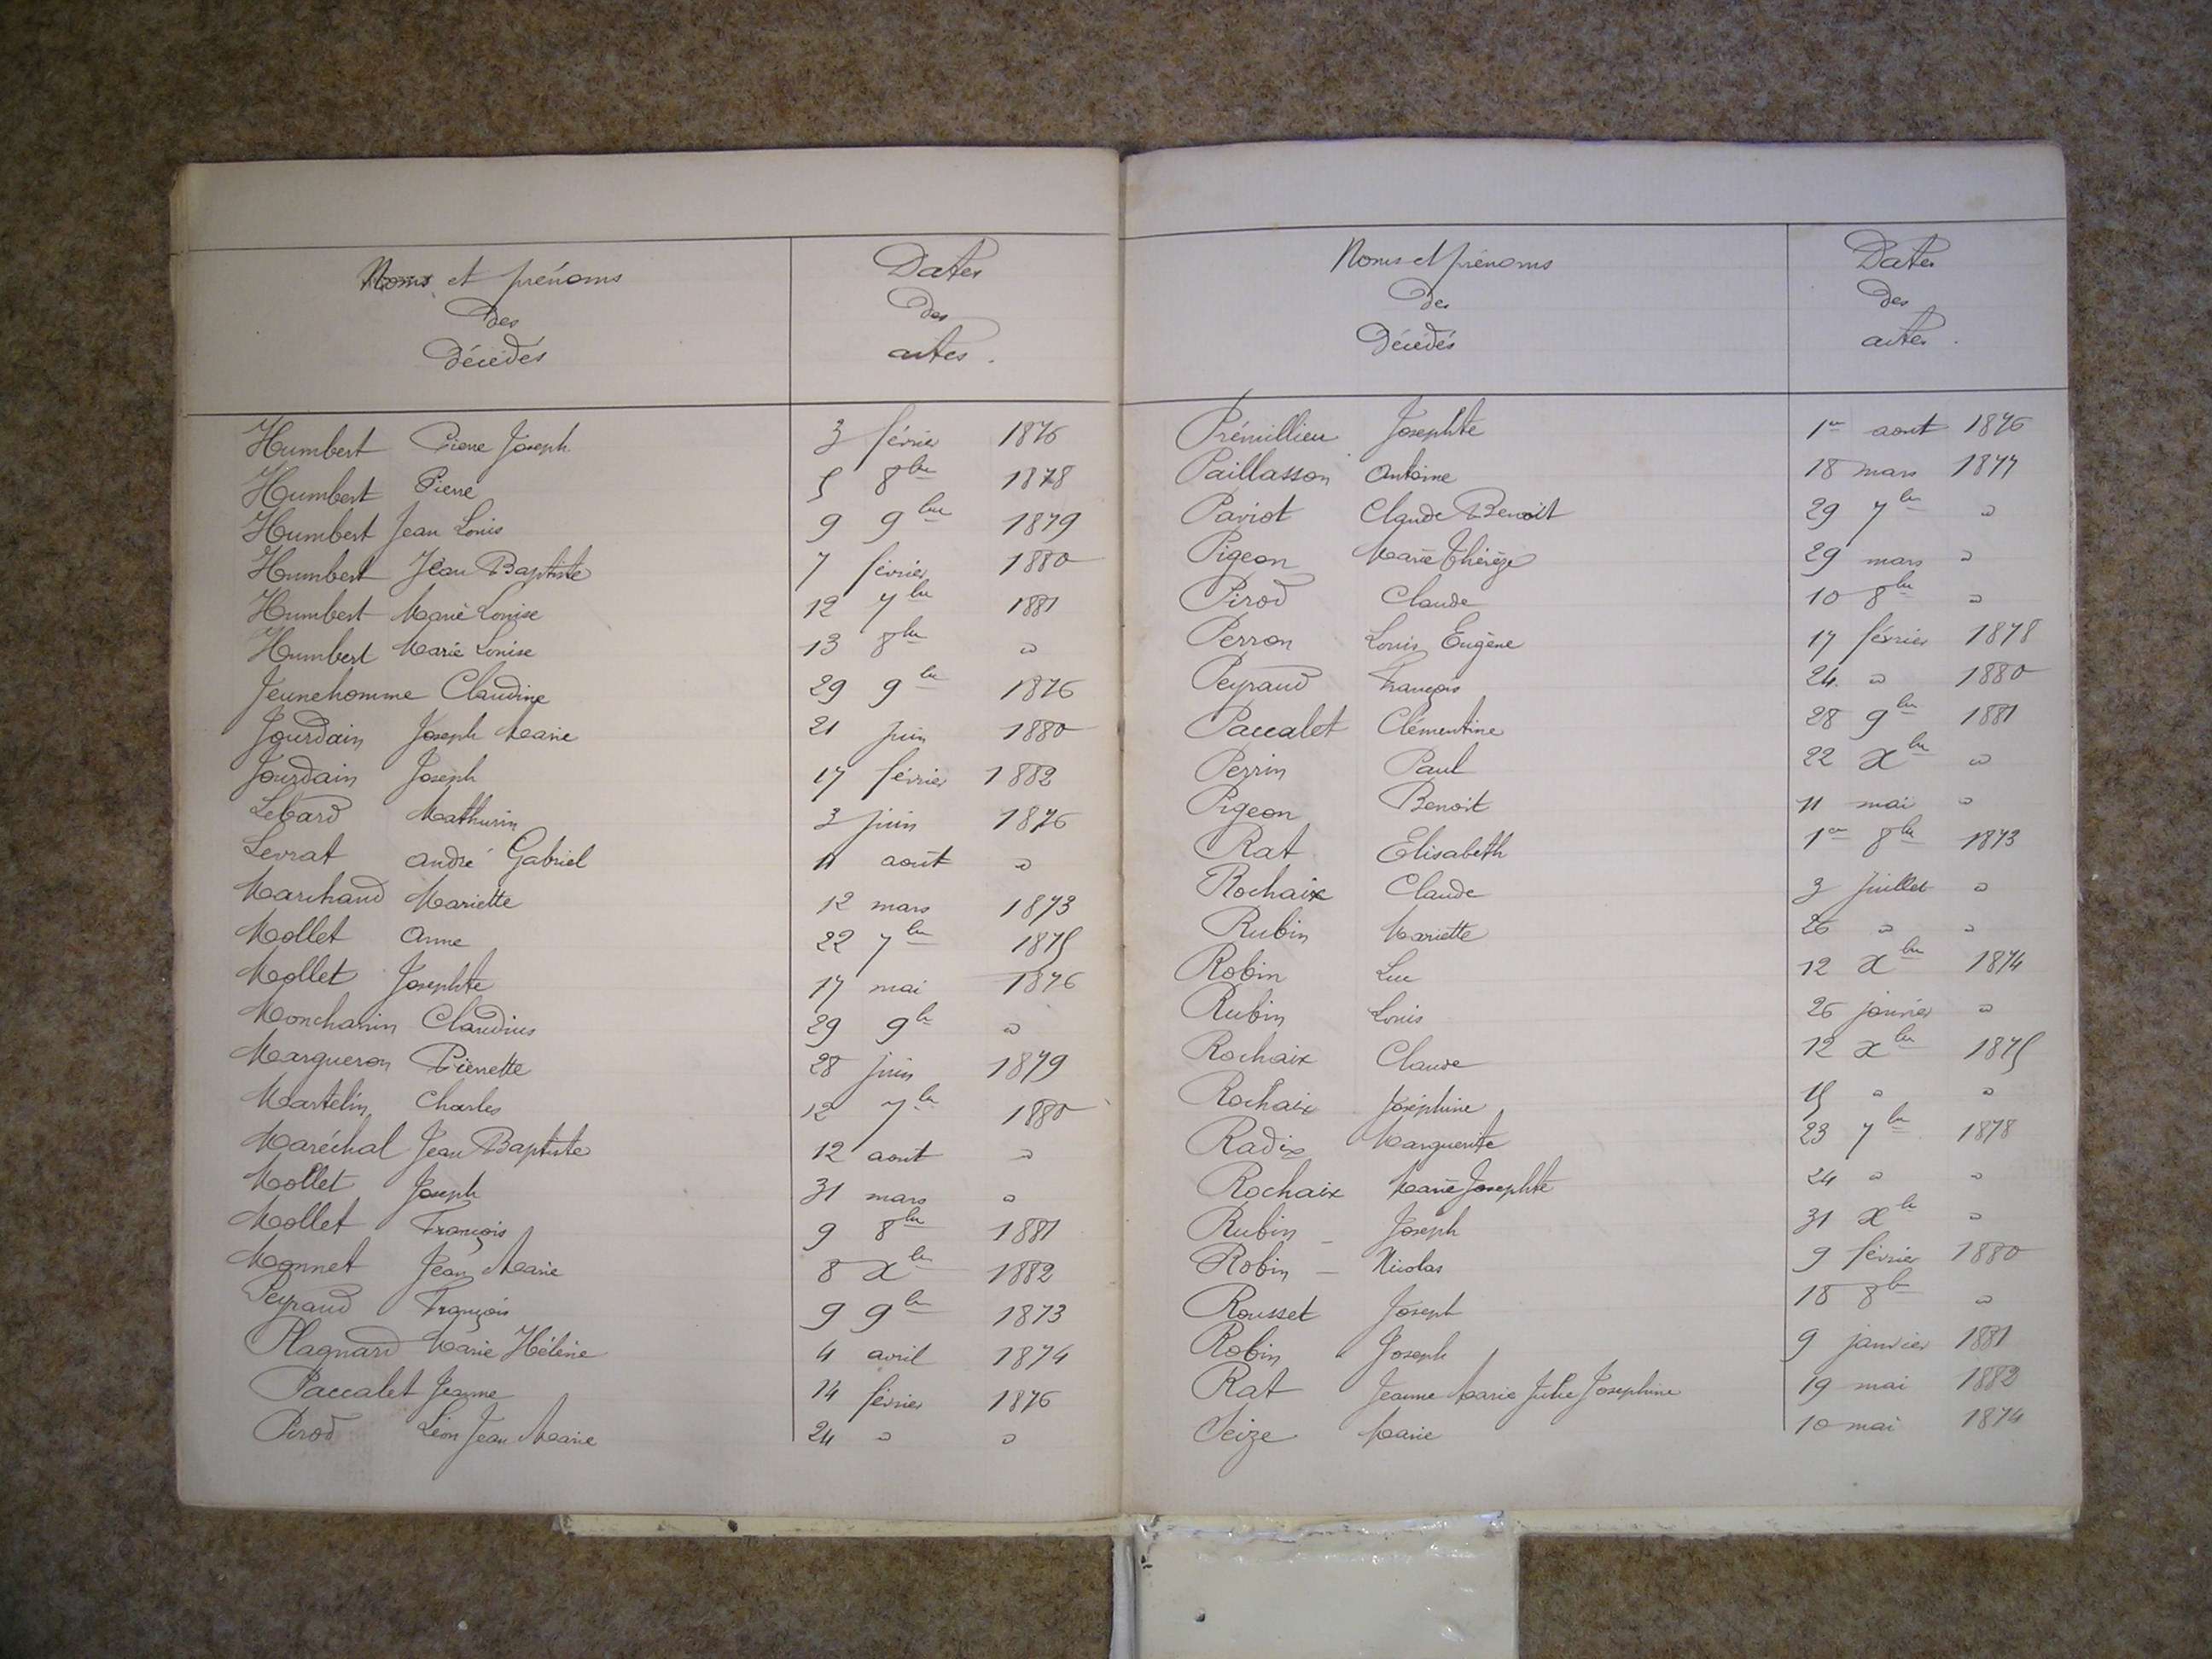 Noms et prénoms
des
décédés
Dates
des
actes.
Humbert Pierre Joseph 3 février 1876
Humbert Pierre 5 8bre 1878
Humbert Jean Louis 9 9bre 1879
Humbert Jean Baptiste 7 février 1880
Humbert Marie Louise 12 7bre 1881
Humbert Marie Louise 13 8bre "
Jeunehomme Claudine 29 9bre 1876
Jourdain Joseph Marie 21 juin 1880
Jourdain Joseph 17 février 1882
Lebard Mathurin 3 juin 1876
Levrat André Gabriel 11 août "
Marchand Mariette 12 mars 1873
Mollet Anne 22 7bre 1875
Mollet Josephte 17 mai 1876
Monchanin Claudius 29 9bre "
Margueron Pierrette 28 juin 1879
Martelin Charles 12 7bre 1880
Maréchal Jean Baptiste 12 aout "
Mollet Joseph 31 mars "
Mollet François 9 8bre 1881
Monnet Jean Marie 8 xbre 1882
Peyraud François 9 9bre 1873
Plagnard Marie Hélène 4 avril 1874
Paccalet Jeanne 14 février 1876
Pirod Léon Jean Marie 24 " "
Noms et prénoms
des
décédés
Dates
des
actes.
Prémillieu Josephte 1er aout 1876
Paillasson Antoine 18 mars 1877
Paviot Claude Benoit 29 7bre "
Pigeon Marie Thérèze 29 mars "
Pirod Claude 10 8bre "
Perron Louis Eugène 17 février 1878
Peyraud François 24 " 1880
Paccalet Clémentine 28 9bre 1881
Perrin Paul 22 xbre "
Pigeon Benoit 11 mai "
Rat Elisabeth 1er 8bre 1873
Rochaix Claude 3 juillet "
Rubin Mariette 26 " "
Robin Luc 12 xbre 1874
Rubin Louis 26 janvier "
Rochaix Claude 12 xbre 1875
Rochaix Joséphine 15 " "
Radix Marguerite 23 7bre 1878
Rochaix Marie Josephte 24 " "
Rubin _ Joseph 31 xbre "
Robin _ Nicolas 9 février 1880
Rousset Joseph 18 8bre "
Robin Joseph 9 janvier 1881
Rat Jeanne Marie Julie Josephine 19 mai 1882
Seize Marie 10 mai 1874